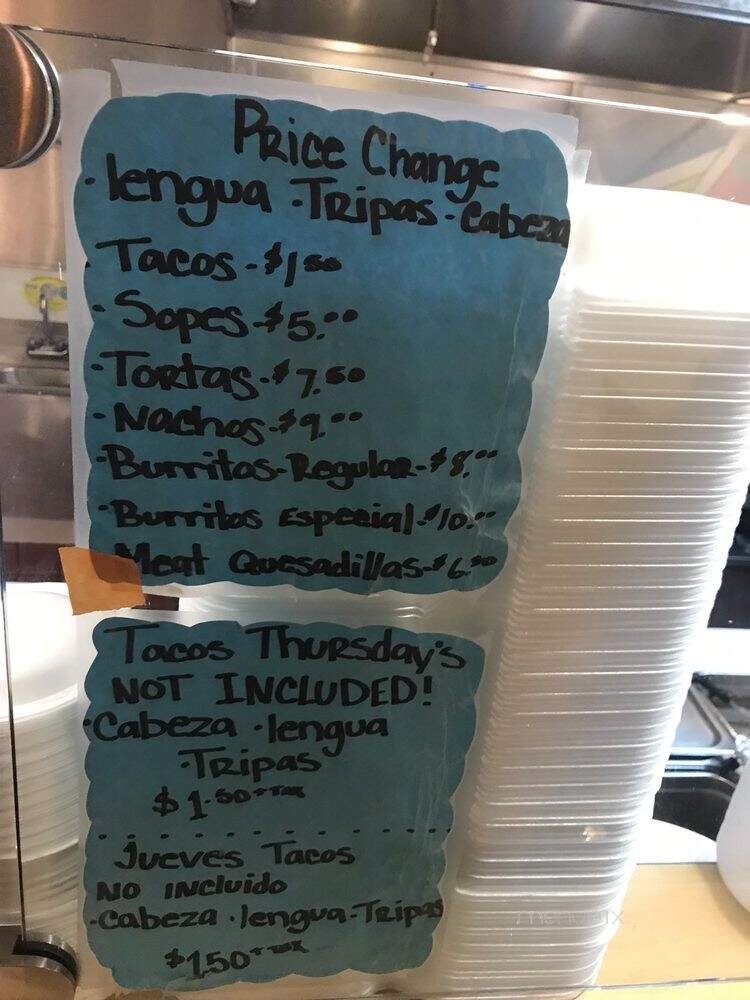 Price Change
· lengua · Tripas - Cabeza
· Tacos - $1.50
· Sopes - $5.00
- Tortas - $7.50
- Nachos - $9.00
- Burritos - Regular - $8.00
· Burritos Especial - $10.00
Meat Quesadillas - $6.00
Tacos Thursday's
NOT INCLUDED!
· Cabeza · lengua
· Tripas
$1.50 + Tax
Jueves Tacos
NO INCluido
- Cabeza · lengua - Tripas
$1.50 + Tax